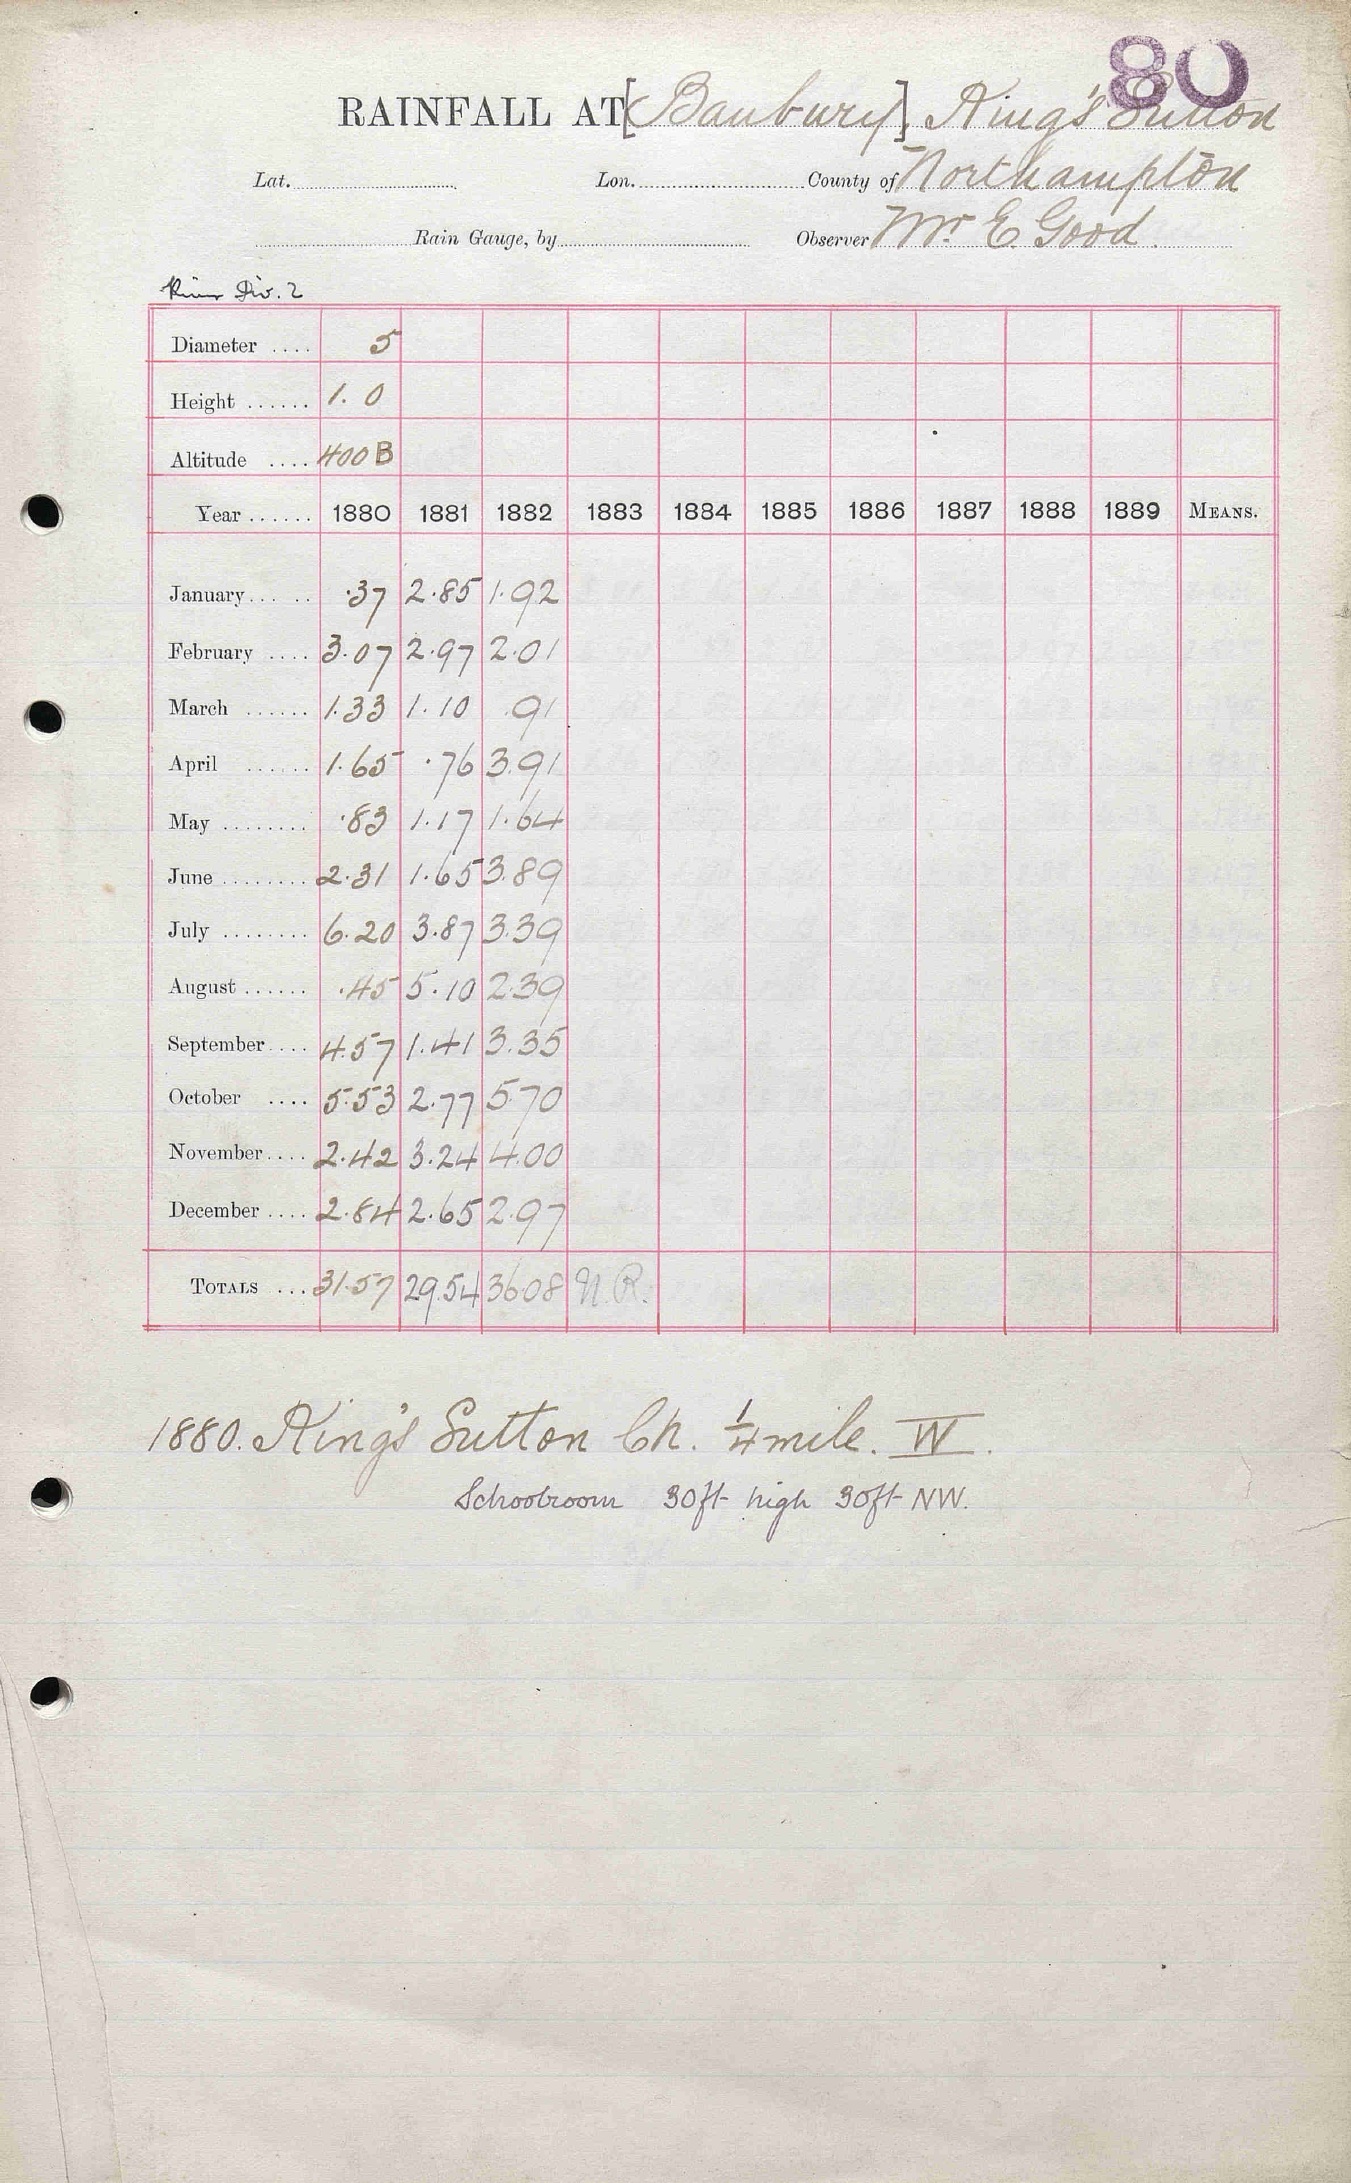 80
RAINFALL AT [Banbury] King's Sutton
Lat. Lon. County of Northampton
Rain Gauge, by Observer Mr E. Good.
River Div. 2
Diameter .... 5
Height ...... 1. 0
Altitude .... 400 B
Year ...... 1880 1881 1882 1883 1884 1885 1886 1887 1888 1889 MEANS.
January ... .. ·37 2·85 1·92
February .... 3·07 2·97 2·01
March ...... 1·33 1·10 ·91
April ...... 1·65 ·76 3·91
May ........ ·83 1·17 1·64
June ........ 2·31 1·65 3·89
July ........ 6·20 3·87 3·39
August ...... ·45 5·10 2·39
September .... 4·57 1·41 3·35
October .... 5·53 2·77 5·70
November .... 2·42 3·24 4·00
December .... 2·84 2·65 2·97
TOTALS ... 31·57 29·54 36·08 N.R.
1880. King's Sutton Ch. ¼ mile. W.
Schoolroom 30ft high 30ft NW.